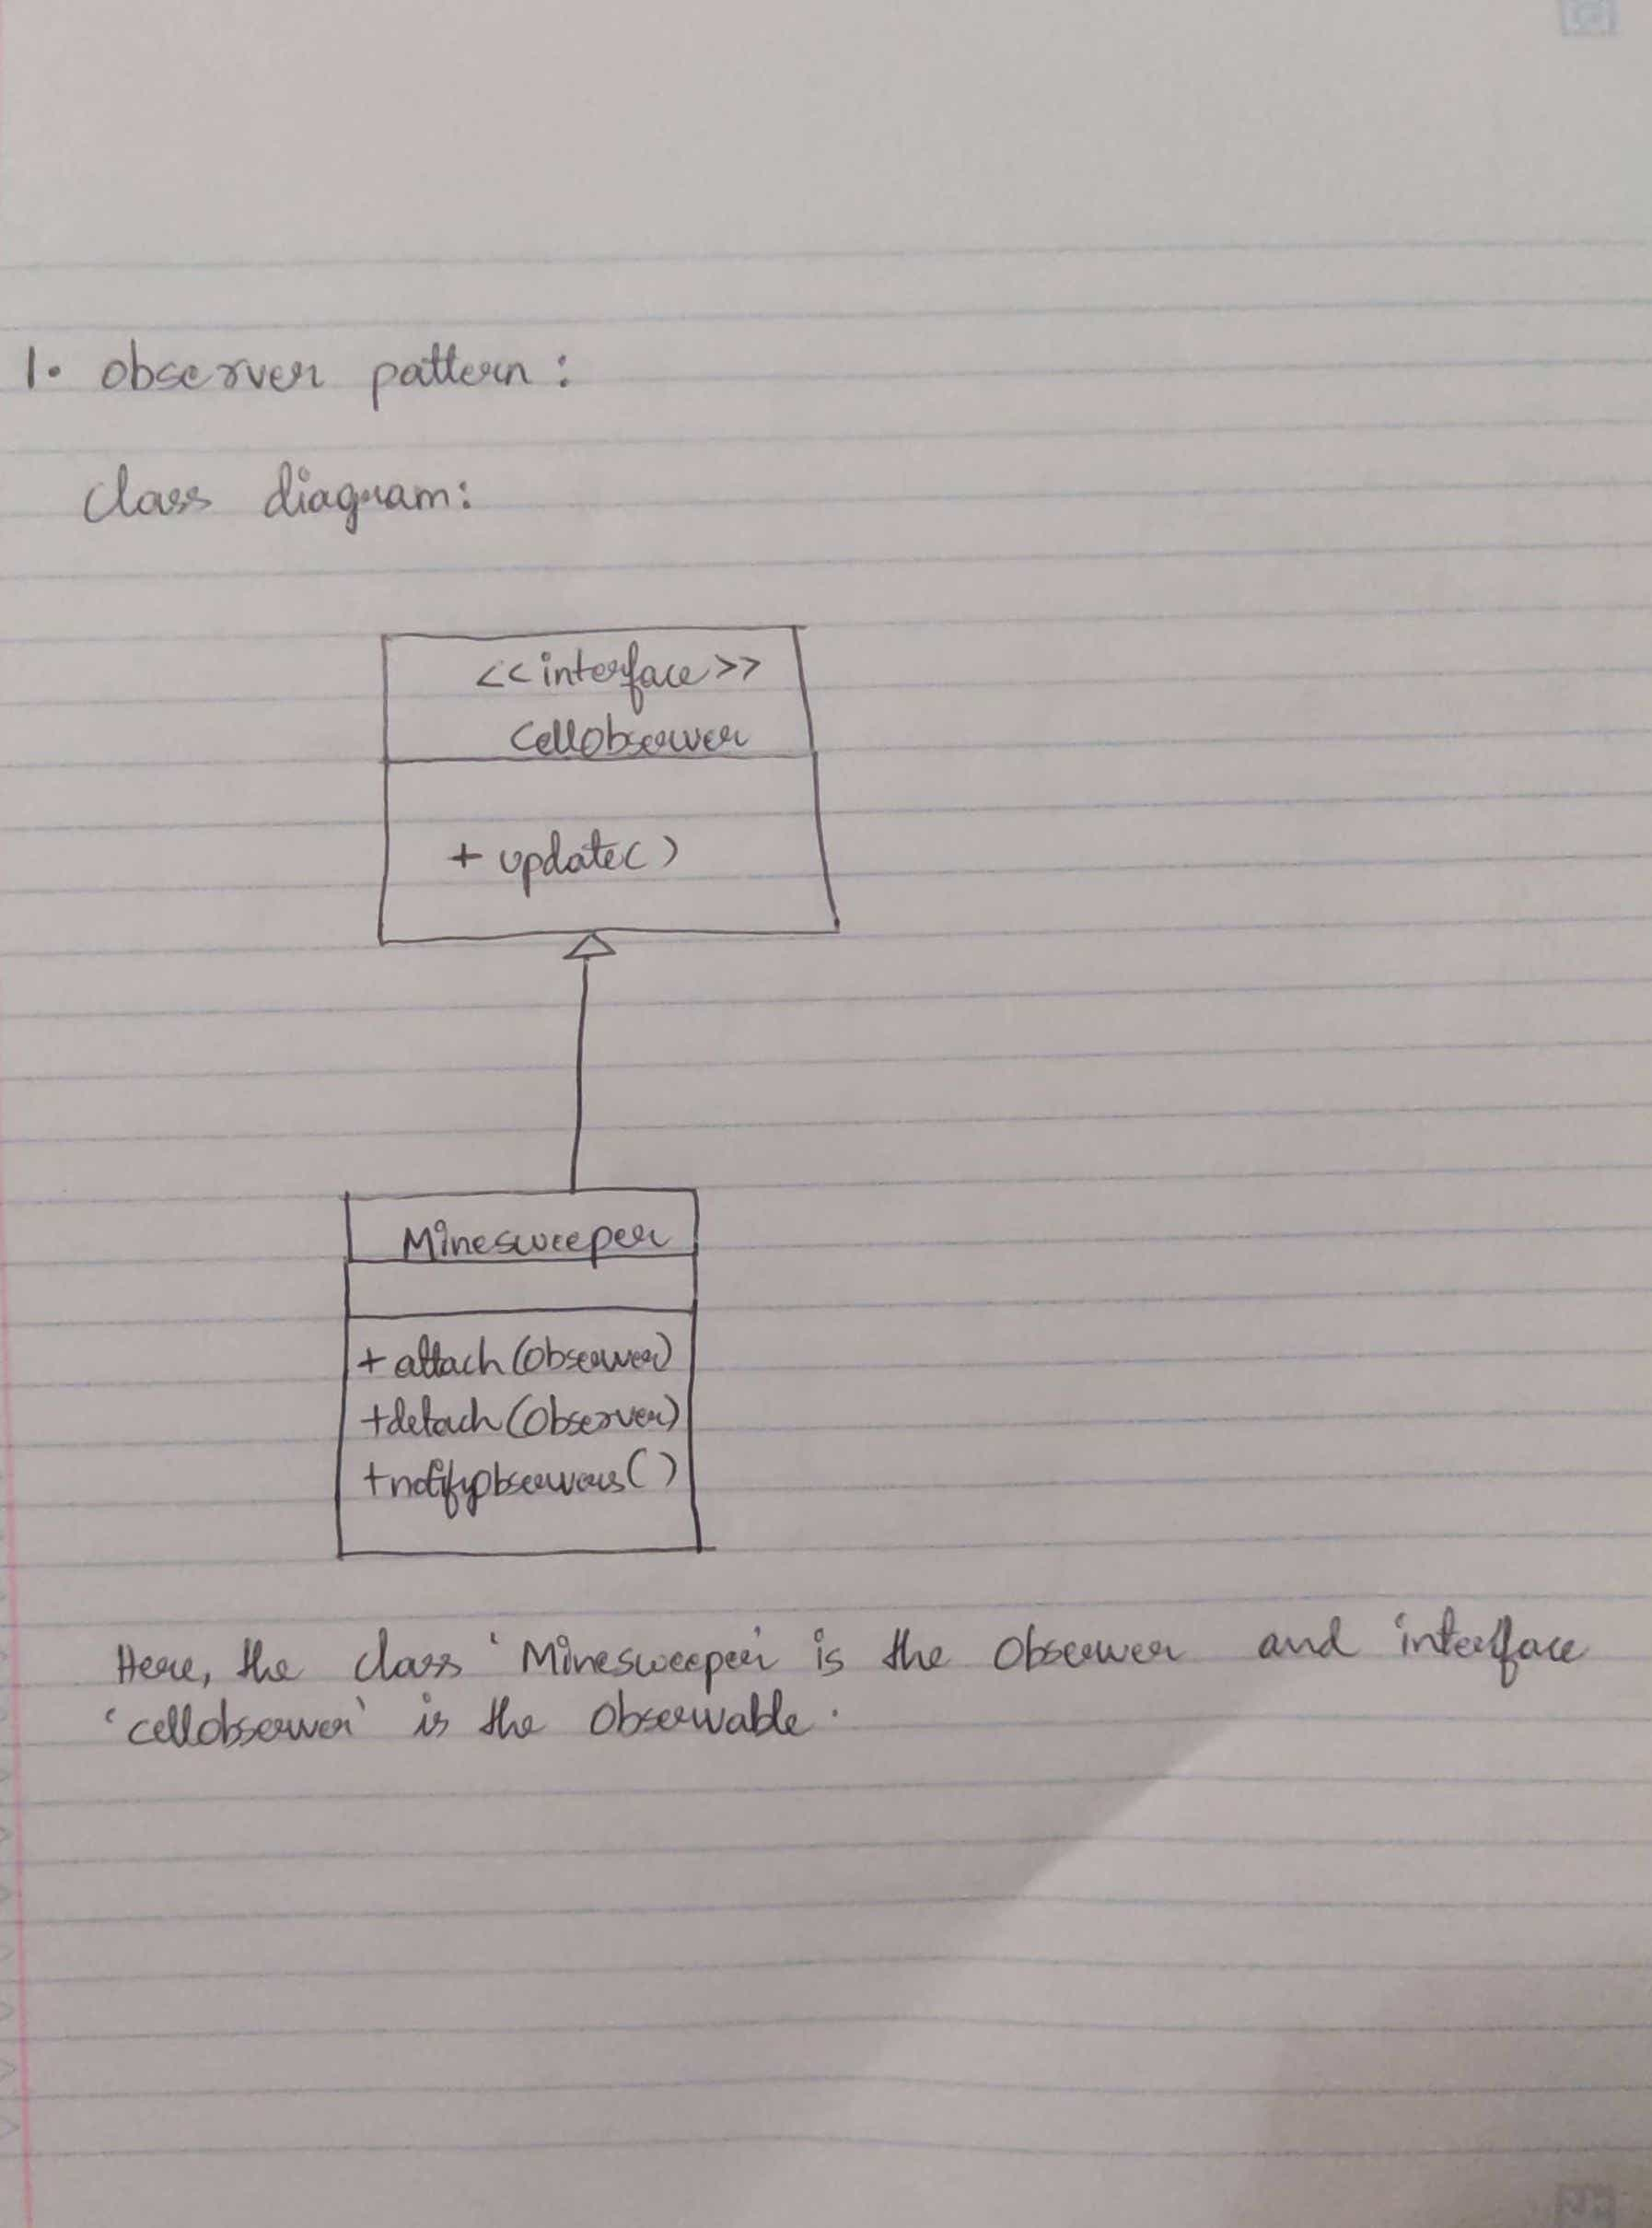 1. observer pattern :
class diagram:
<<interface>>
CellObserver
+ update()
Minesweeper
+ attach(Observer)
+detach(Observer)
+notifyObservers()
Here, the class 'Minesweeper' is the Observer and interface
'cellobserver' is the Observable.